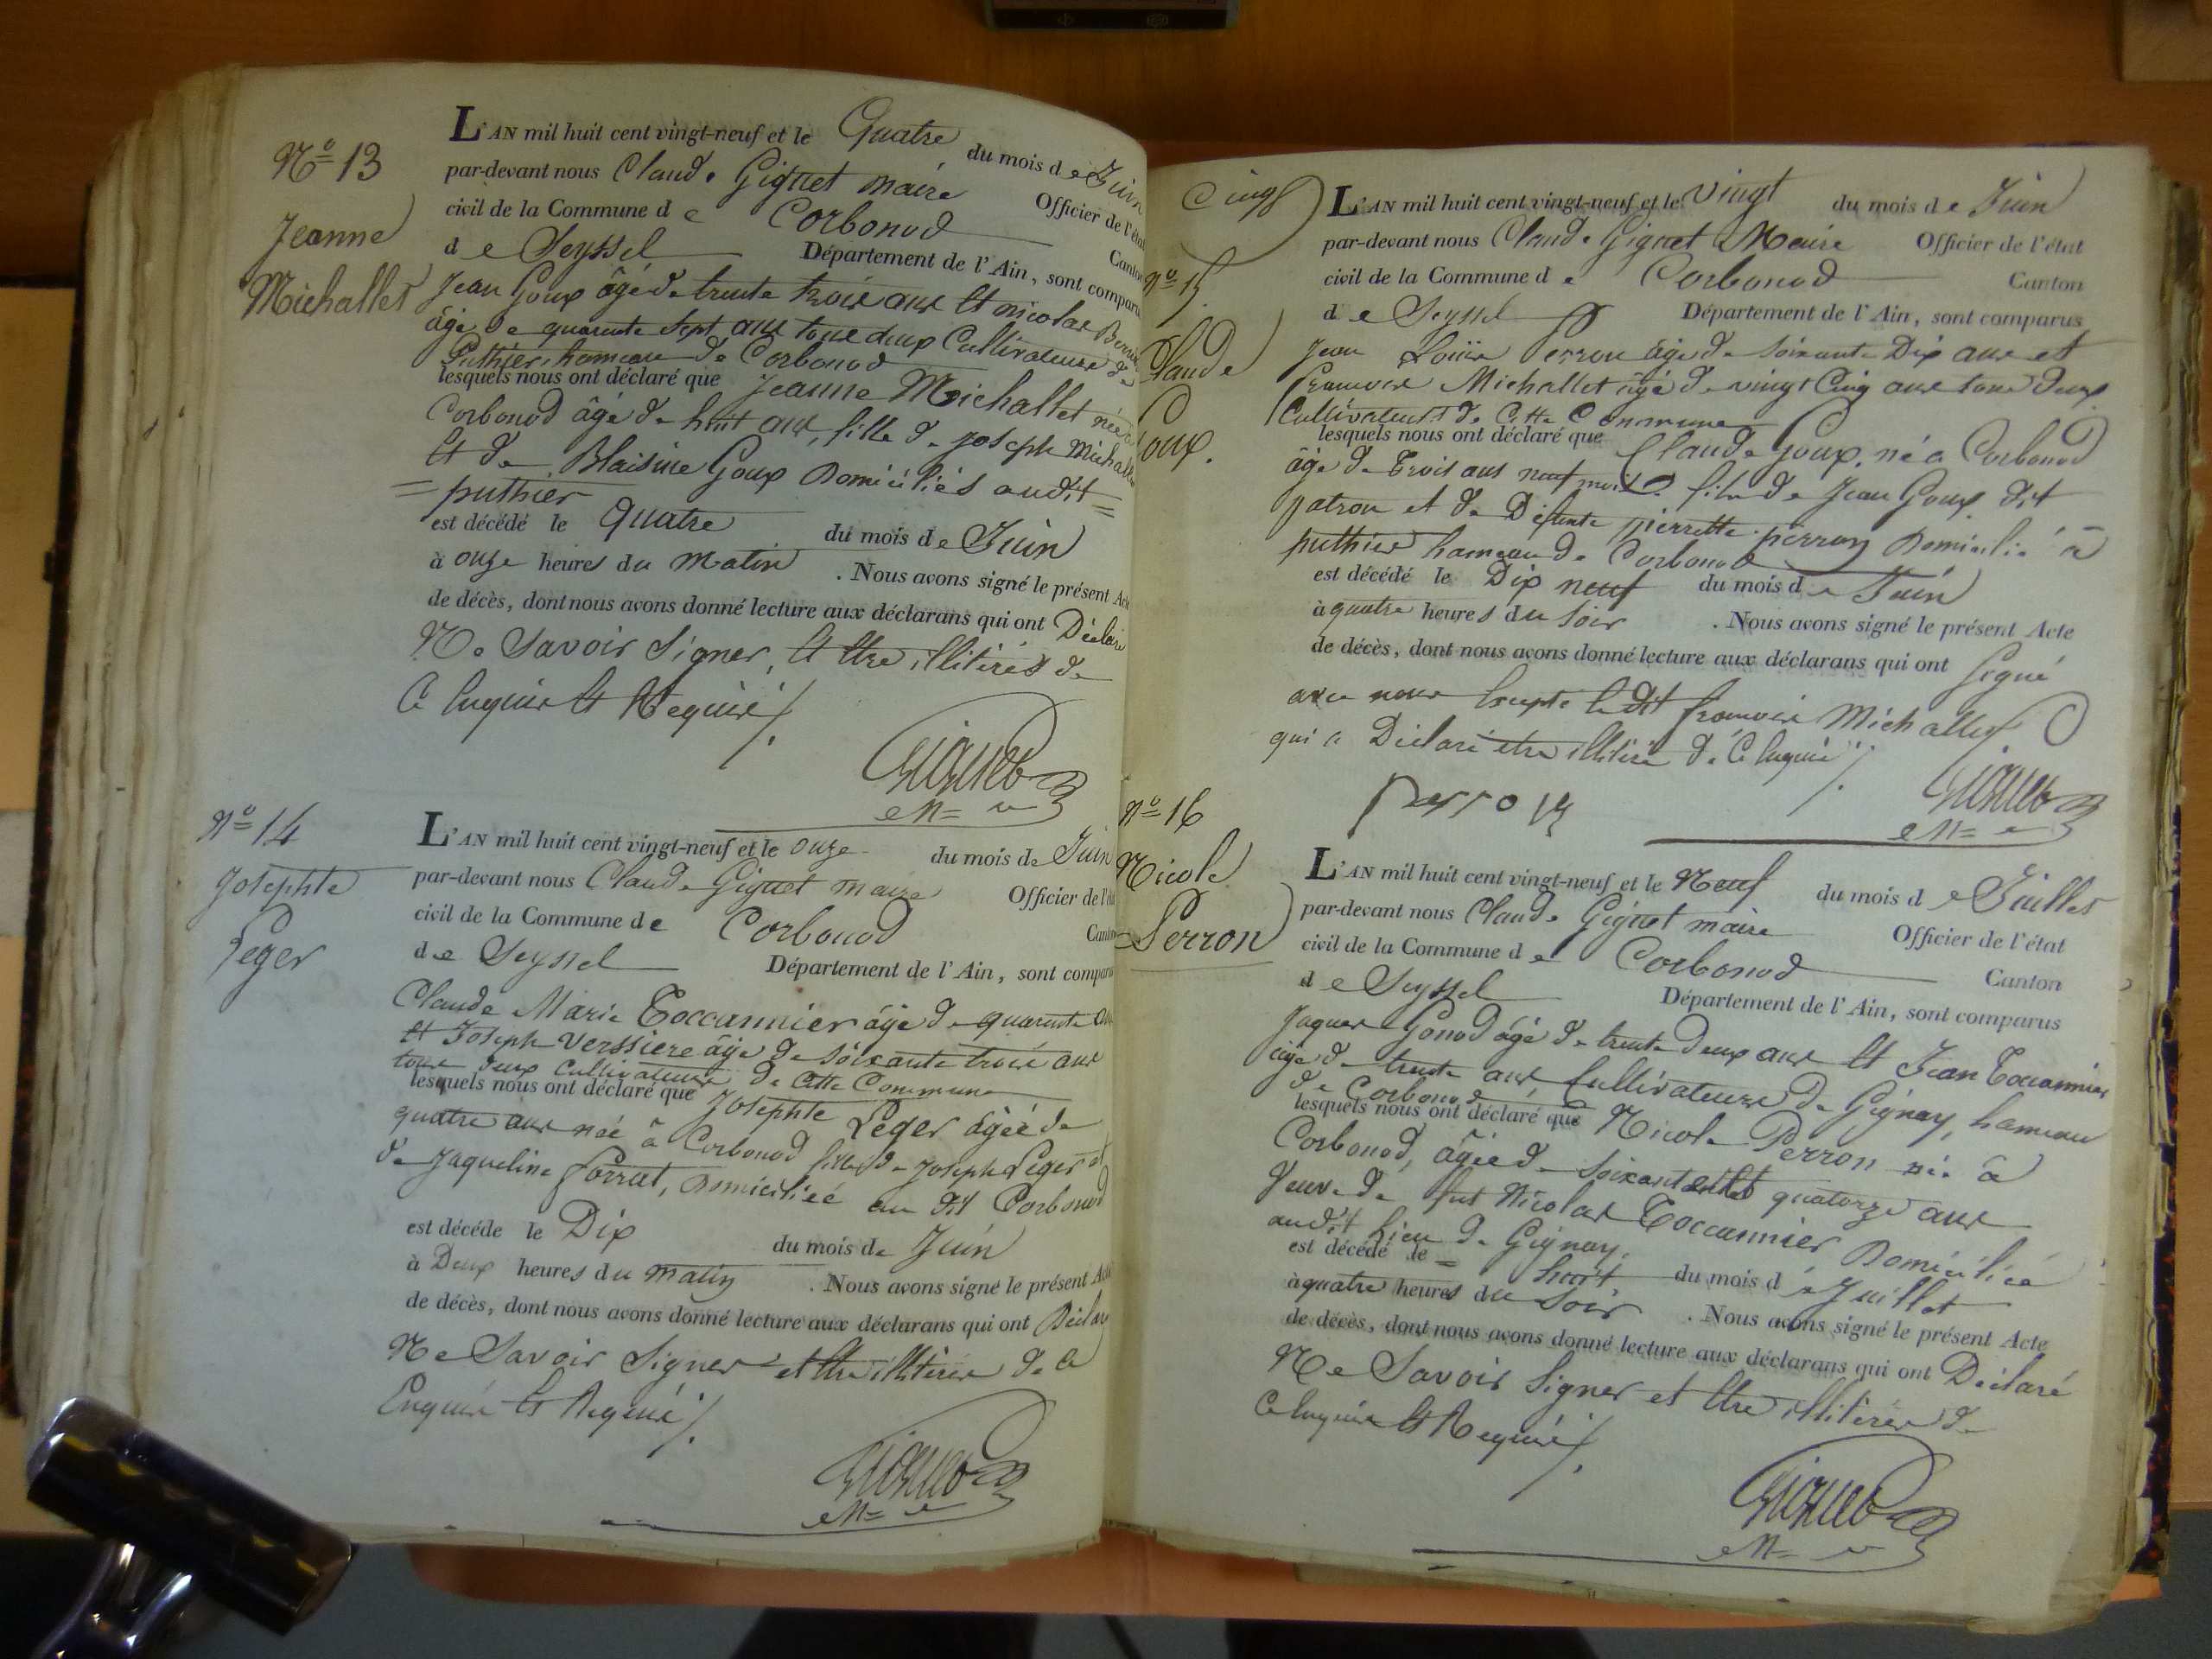 Nº 13
Jeanne
Michallet
L'AN mil huit cent vingt-neuf et le Quatre du mois de Juin
par-devant nous Claude Gignet maire Officier de l'état
civil de la Commune de Corbonod Canton
de Seyssel Département de l'Ain, sont comparu
Jean Goux âgé de trente trois ans Et nicolas
âgé de quarente Sept ans tous deux Cultivateurs de
Puthier hameau de Corbonod
lesquels nous ont déclaré que Jeanne Michallet née
Corbonod âgé de huit ans, fille de joseph Michallet
Et de Blaisine Goux Domiciliés audit
= puthier =
est décédé le Quatre du mois de Juin
à onze heures du matin . Nous avons signé le présent Acte
de décès, dont nous avons donné lecture aux déclarans qui ont Déclaré
Ne Savoir Signer, Et Etre illitirés de
Ce Enquis Et Requis /.
Nº 14
Josephte
Leger
L'AN mil huit cent vingt-neuf et le onze du mois de Juin
par-devant nous Claude Gignet maire Officier de l'état
civil de la Commune de Corbonod Canton
de Seyssel Département de l'Ain, sont comparu
Claude Marie Toccannier âgé de quarente ans
Et Joseph Verssiere âgé de Soixante trois ans
tous deux Cultivateurs de Cette Commune
lesquels nous ont déclaré que Josephte Leger âgée de
quatre ans née à Corbonod fille de Joseph Leger et
de Jaqueline Forrat, Domiciliée au dit Corbonod
est décéde le Dix du mois de Juin
à Deux heures du matin . Nous avons signé le présent Acte
de décès, dont nous avons donné lecture aux déclarans qui ont Déclaré
Ne Savoir Signer et Etre illitires de Ce
Enquis Et Requis /.
Cinq
Nº 15
Claude
Goux.
L'AN mil huit cent vingt-neuf et le Vingt du mois de Juin
par-devant nous Claude Gignet Maire Officier de l'état
civil de la Commune de Corbonod Canton
de Seyssel Département de l'Ain, sont comparus
Jean Louis Perron âgé de Soixante Dix ans et
francois Michallet âgé de vingt Cinq ans tous deux
Cultivateurs de Cette Commune
lesquels nous ont déclaré que Claude Goux, né à Corbonod
âgé de Trois ans neuf mois fils de Jean Goux dit
patron et de Défunte pierrette perron Domicilié à
puthier hameau de Corbonod
est décédé le Dix neuf du mois de Juin
à quatre heures du Soir . Nous avons signé le présent Acte
de décès, dont nous avons donné lecture aux déclarans qui ont Signé
avec nous Excepté le dit francois Michallet
qui a Déclaré etre illitiré de Ce Enquis /.
perron
Nº 16
Nicole
Perron
L'AN mil huit cent vingt-neuf et le Neuf du mois de Juillet
par-devant nous Claude Gignet maire Officier de l'état
civil de la Commune de Corbonod Canton
de Seyssel Département de l'Ain, sont comparus
Jaques Gonod âgé de trente Deux ans Et Jean Toccannier
âgé de trente ans Cultivateurs de Gignay, hameau
de Corbonod
lesquels nous ont déclaré que Nicole Perron née à
Corbonod, âgée de Soixante et quatorze ans
Veuve de fut Nicolas Toccannier Domiciliée
audit Lieu de Gignay.
est décédé le = huit du mois de Juillet
à quatre heures du Soir . Nous avons signé le présent Acte
de décès, dont nous avons donné lecture aux déclarans qui ont Déclaré
Ne Savoir Signer et Etre illitires de
Ce Enquis Et Requis /.